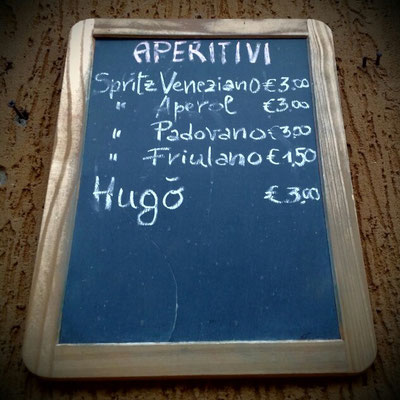 APERITIVI
Spritz Veneziano €3,00
" Aperol €3,00
" Padovano €3,00
" Friulano €1,50
Hugŏ €3,00